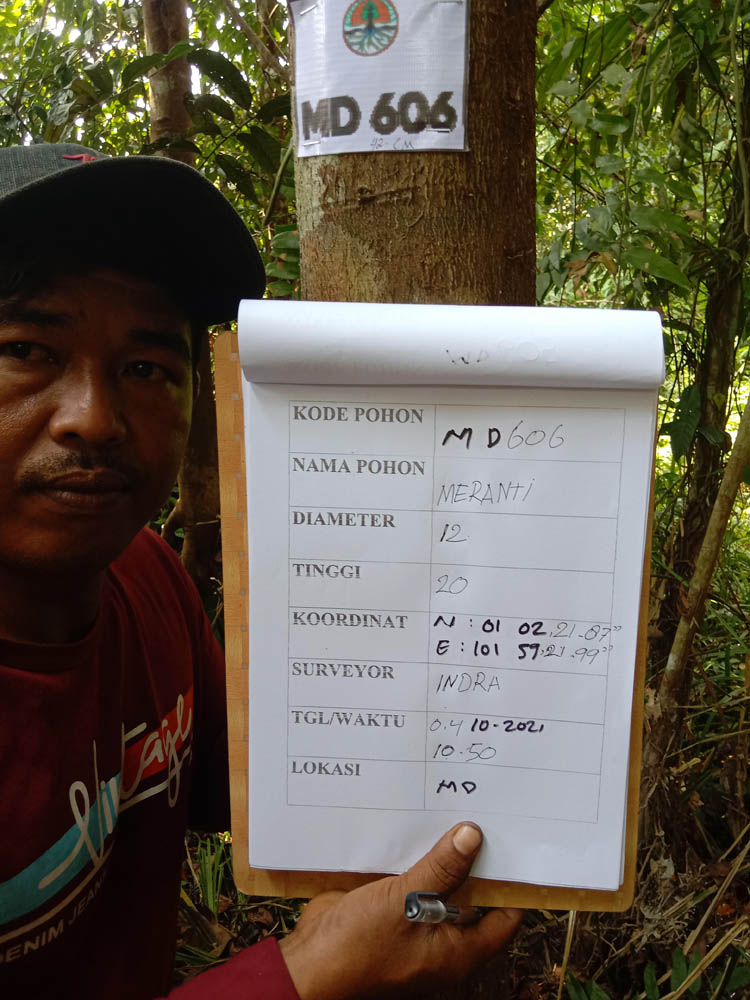 MD 606
KODE POHON MD606
NAMA POHON MERANTI
DIAMETER 12
TINGGI 20
KOORDINAT N : 01 02,21-87"
E : 101 59,21.99"
SURVEYOR INDRA
TGL/WAKTU 0.4 10-2021
10-50
LOKASI MD
Vintage
DENIM JEANS